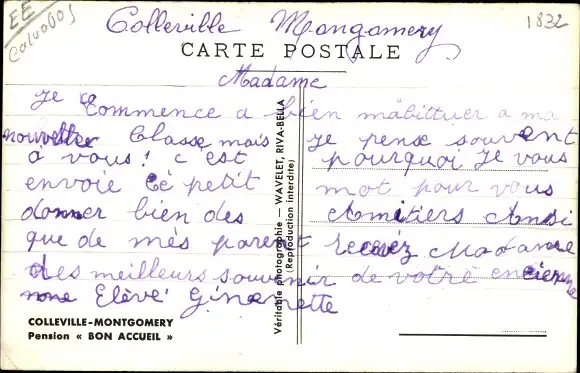 EE
Calvados
1832
Colleville Mongomery
CARTE POSTALE
Madame
Je Commence a bien mabittuer a ma
nouvelle Classe mais je pense souvent
a vous! c est pourquoi Je vous
envoie Cé petit mot pour vous
donner bien des Amitiers Ansi
que de més parent recevéz Madame
des meilleurs souvenir de votre encienne
Elévé Ginette
Véritable photographie — WAVELET, RIVA-BELLA
(Reproduction interdite)
COLLEVILLE-MONTGOMERY
Pension « BON ACCUEIL »